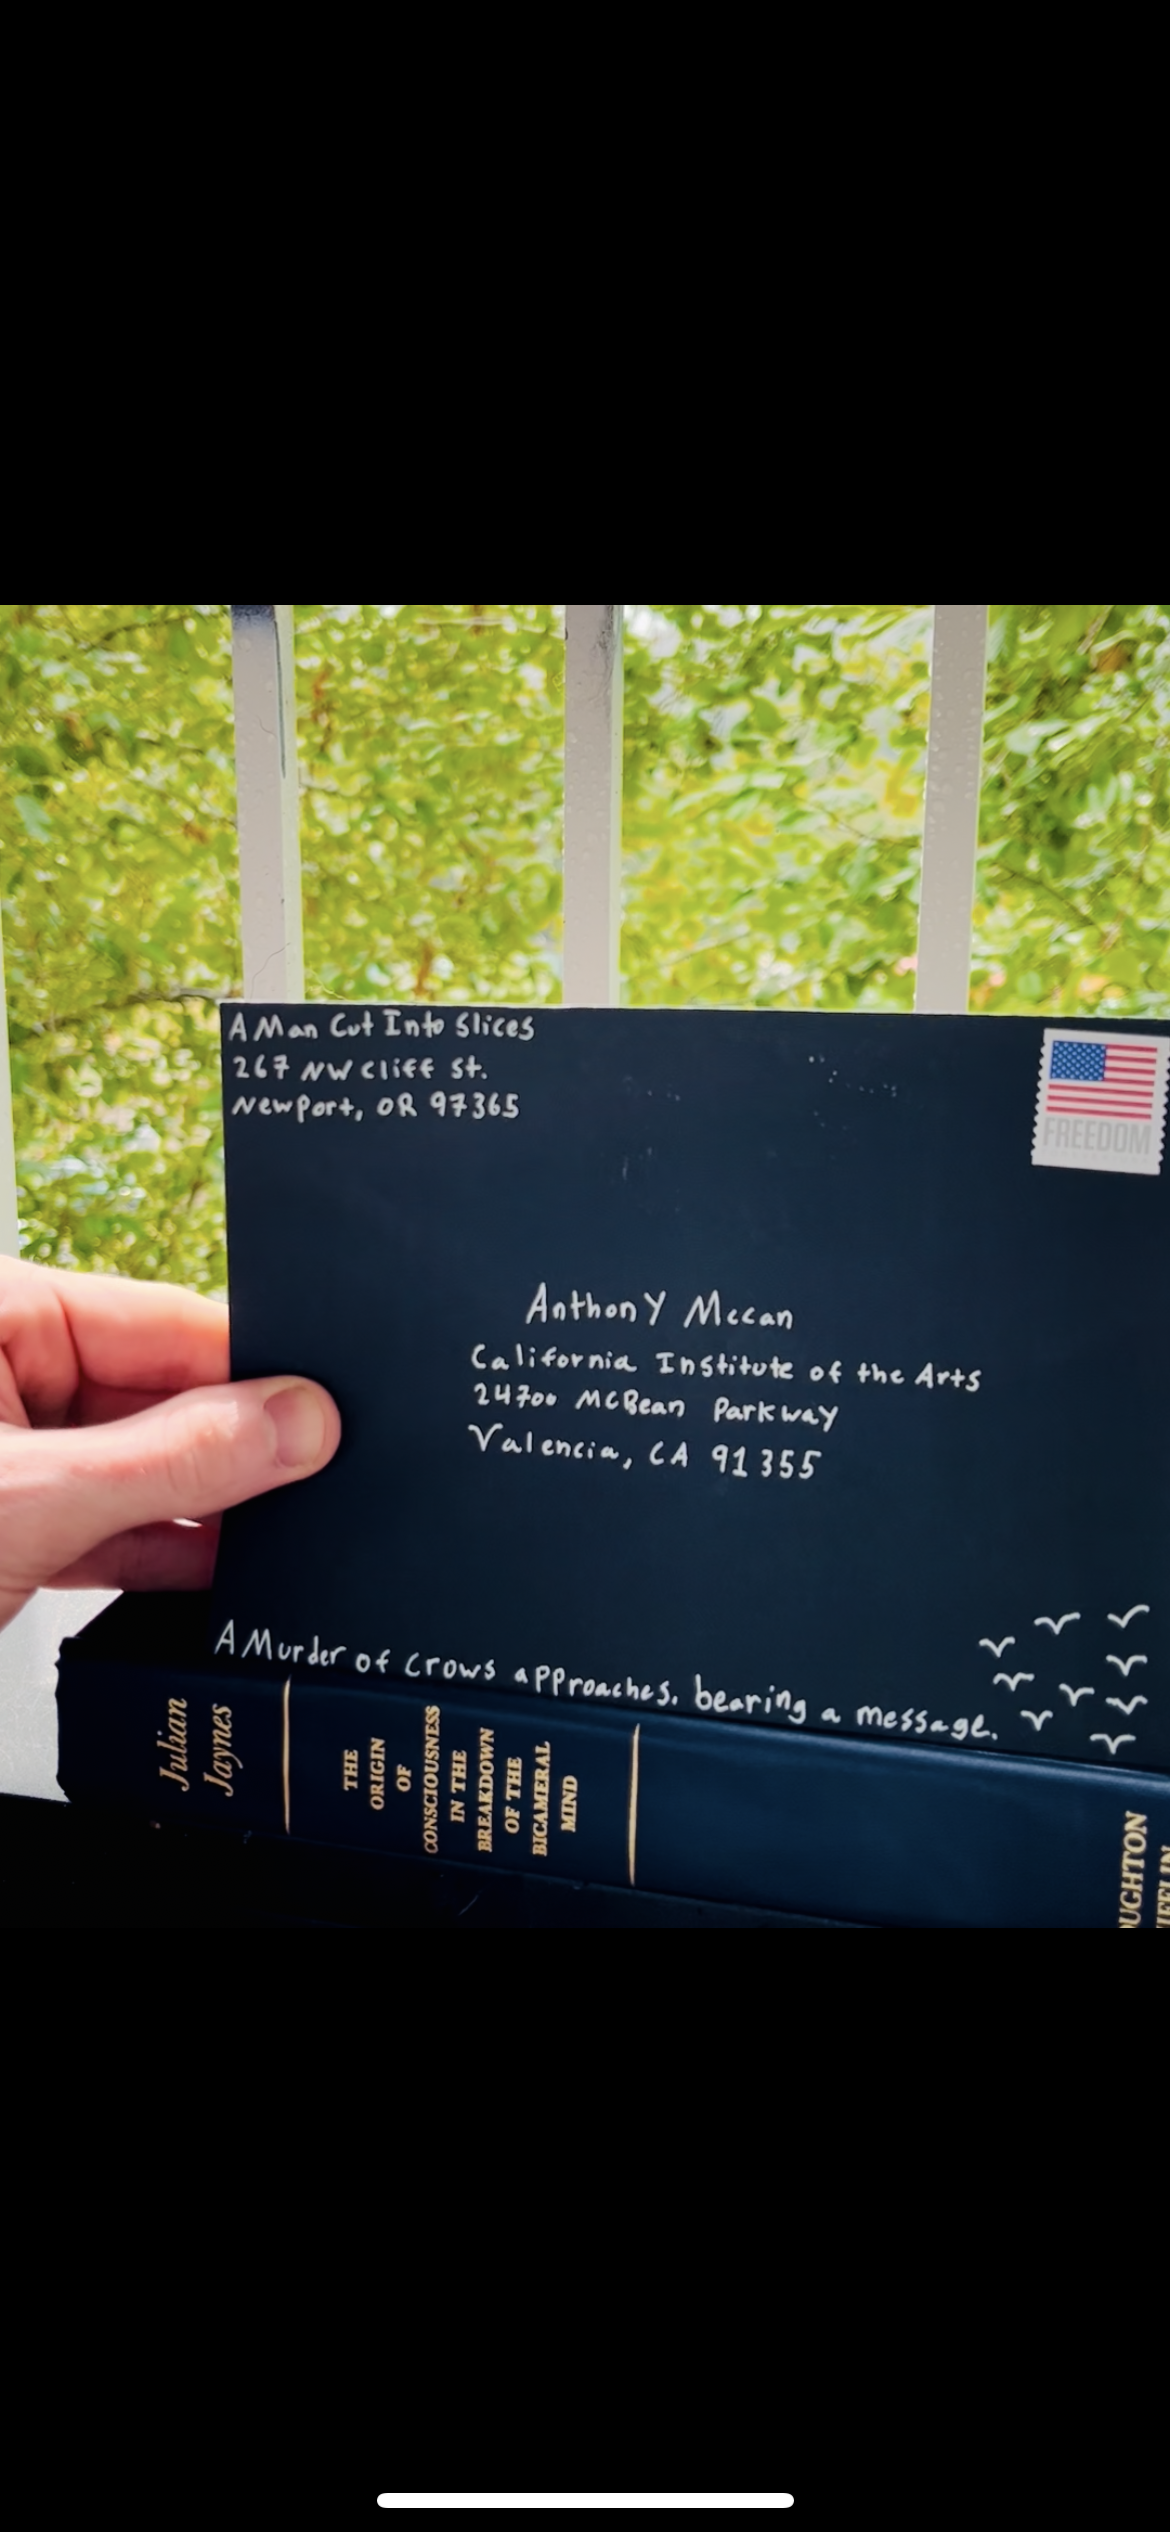 A Man Cut Into Slices
267 NW Cliff St.
Newport, OR 97365
FREEDOM
Anthony Mccan
California Institute of the Arts
24700 McBean Parkway
Valencia, CA 91355
A Murder of Crows approaches. bearing a message.
Julian
Jaynes
THE
ORIGIN
OF
CONSCIOUSNESS
IN THE
BREAKDOWN
OF THE
BICAMERAL
MIND